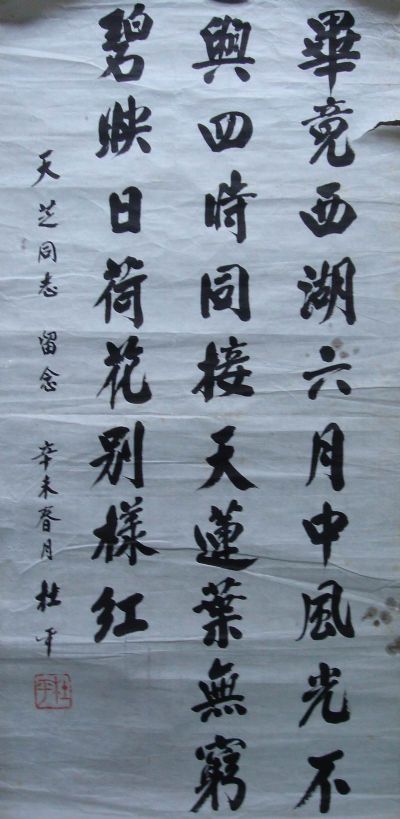 畢竟西湖六月中風光不
與四時同接天蓮葉無窮
碧映日荷花别樣红
天芝同志 留念 辛未春月 杜平
杜平